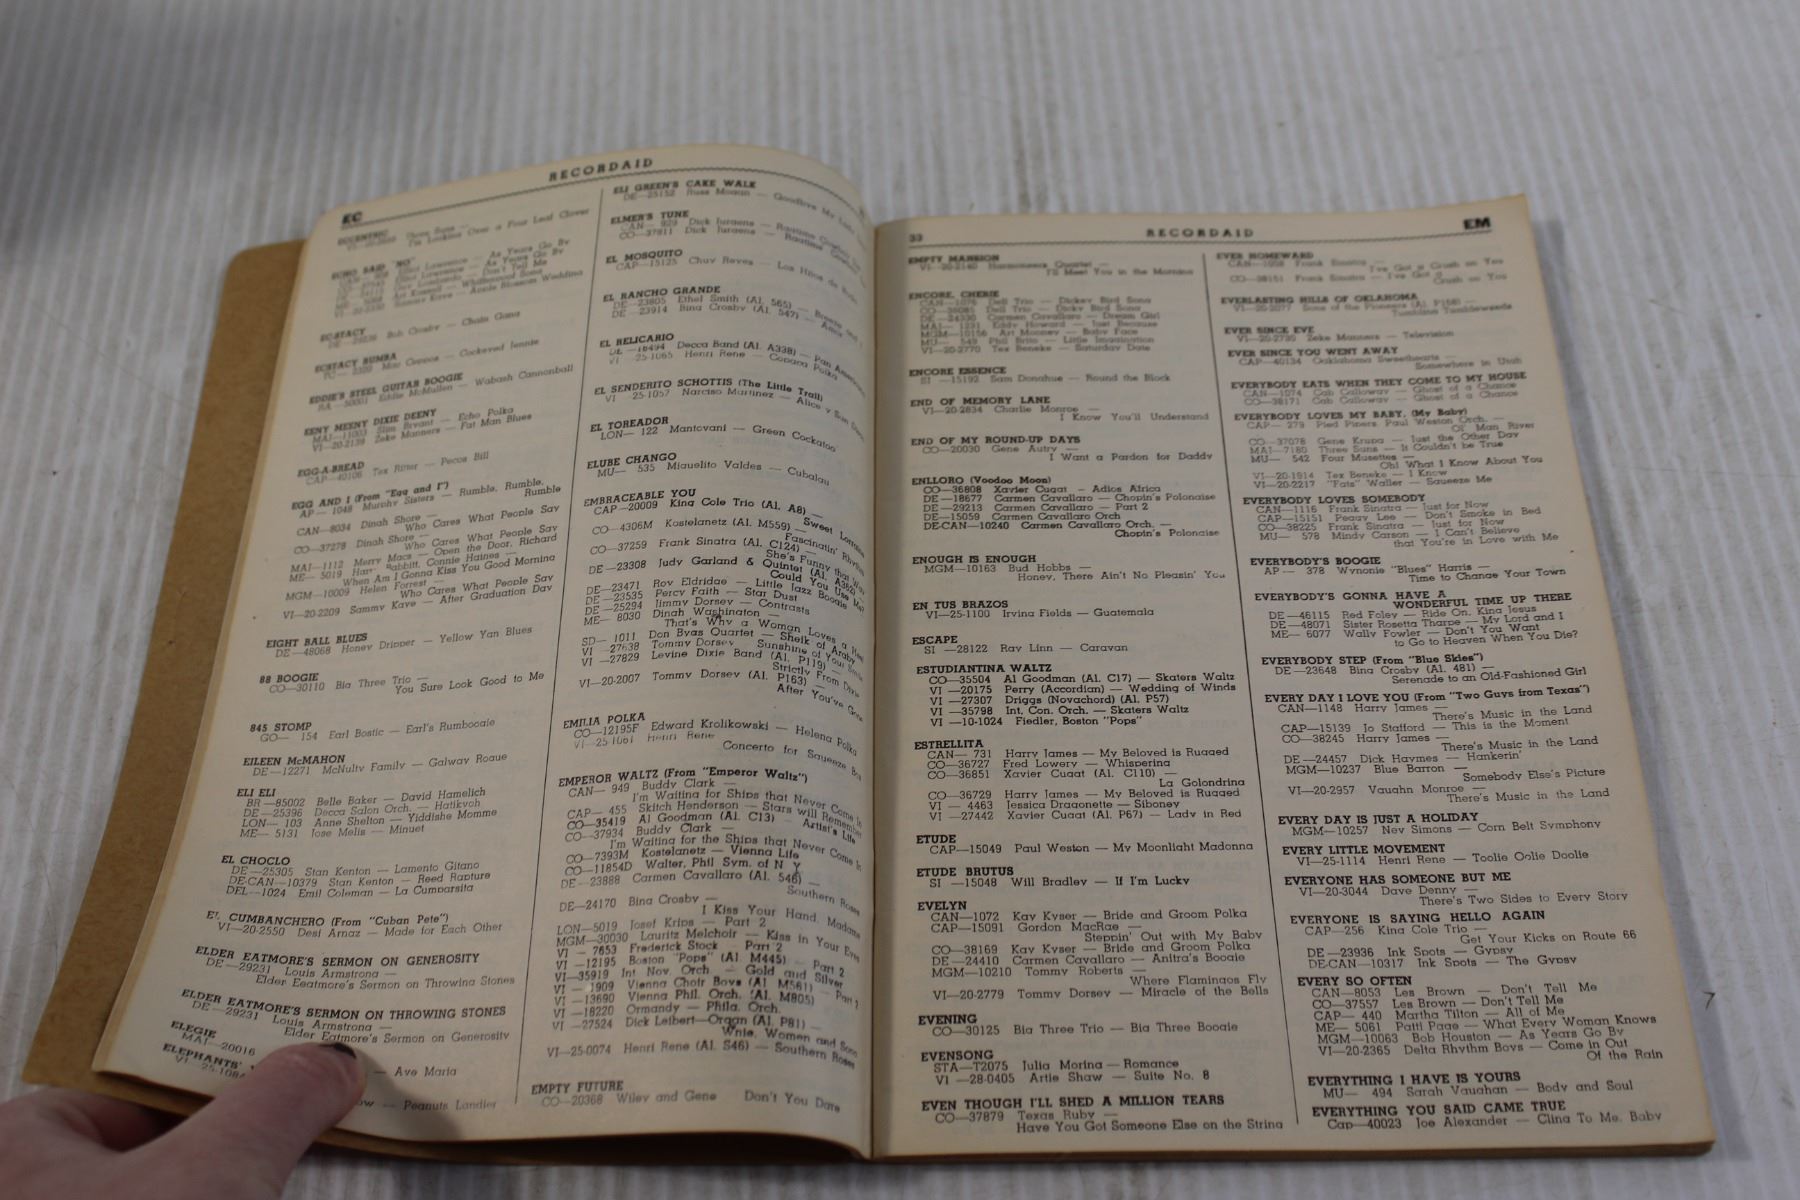 RECORDAID
EC
ECCENTRIC
VI—20-2688 Three Suns —
I'm Looking Over a Four Leaf Clover
ECHO SAID "NO"
Elliot Lawrence — As Years Go By
Elliot Lawrence — As Years Go By
Guy Lombardo — Don't Tell Me
Art Kassell — Whiffenpoof Song
Sammy Kaye — Apple Blossom Wedding
ECSTACY
Bob Crosby — Chain Gang
ECSTACY RUMBA
Mac Ceppos — Cockeyed Jennie
EDDIE'S STEEL GUITAR BOOGIE
RA— 50001 Eddie McMullen — Wabash Cannonball
EENY MEENY DIXIE DEENY
MAI—11003 Slim Bryant — Echo Polka
VI—20-2139 Zeke Manners — Fat Man Blues
EGG-A-BREAD
CAP—40106 Tex Ritter — Pecos Bill
EGG AND I (From "Egg and I")
AP — 1048 Murphy Sisters — Rumble, Rumble,
Rumble
CAN—8034 Dinah Shore —
Who Cares What People Say
CO—37278 Dinah Shore —
Who Cares What People Say
MAI—1112 Merry Macs — Open the Door, Richard
ME— 5019 Harry Babbitt, Connie Haines —
When Am I Gonna Kiss You Good Morning
MGM—10009 Helen Forrest —
Who Cares What People Say
VI—20-2209 Sammy Kaye — After Graduation Day
EIGHT BALL BLUES
DE—48068 Honey Dripper — Yellow Yan Blues
88 BOOGIE
CO—30110 Big Three Trio —
You Sure Look Good to Me
845 STOMP
GO— 154 Earl Bostic — Earl's Rumboogie
EILEEN McMAHON
DE—12271 McNulty Family — Galway Rogue
ELI ELI
BR —85002 Belle Baker — David Hamelich
DE—25396 Decca Salon Orch. — Hatikvoh
LON— 103 Anne Shelton — Yiddishe Momme
ME— 5131 Jose Melis — Minuet
EL CHOCLO
DE—25305 Stan Kenton — Lamento Gitano
DE-CAN—10379 Stan Kenton — Reed Rapture
DEL—1024 Emil Coleman — La Cumparsita
EL CUMBANCHERO (From "Cuban Pete")
VI—20-2550 Desi Arnaz — Made for Each Other
ELDER EATMORE'S SERMON ON GENEROSITY
DE—29231 Louis Armstrong —
Elder Eeatmore's Sermon on Throwing Stones
ELDER EATMORE'S SERMON ON THROWING STONES
DE—29231 Louis Armstrong —
Elder Eatmore's Sermon on Generosity
ELEGIE
MAI—20016 — Ave Maria
ELEPHANTS'
VI—25-108 — Peanuts Landler
ELI GREEN'S CAKE WALK
DE—25152 Russ Morgan — Goodbye My Lady
ELMER'S TUNE
CAN— 929 Dick Jurgens — Ragtime Cowboy
CO—37811 Dick Jurgens — Ragtime Cowboy
EL MOSQUITO
CAP—15125 Chuy Reyes — Los Hijos de
EL RANCHO GRANDE
DE—23805 Ethel Smith (Al. 565) —
DE—23914 Bing Crosby (Al. 547) —
EL RELICARIO
DE —18494 Decca Band (Al. A338) — Pan American
VI 25-1065 Henri Rene — Copaca Polka
EL SENDERITO SCHOTTIS (The Little Trail)
VI 25-1057 Narciso Martinez — Alice y
EL TOREADOR
LON— 122 Mantovani — Green Cockatoo
ELUBE CHANGO
MU— 535 Miguelito Valdes — Cubalau
EMBRACEABLE YOU
CAP—20009 King Cole Trio (Al. A8) —
Sweet Lorraine
CO—4306M Kostelanetz (Al. M559) —
Fascinatin' Rhythm
CO—37259 Frank Sinatra (Al. C124) —
She's Funny that Way
DE—23308 Judy Garland & Quintet (Al. A362) —
Could You Use Me?
DE—23471 Roy Eldridge — Little Jazz Boogie
DE—23535 Percy Faith — Star Dust
DE—25294 Jimmy Dorsey — Contrasts
ME— 8030 Dinah Washington —
That's Why a Woman Loves a Heel
SD— 1011 Don Byas Quartet — Sheik of Araby
VI —27638 Tommy Dorsey Sunshine of Your Smile
VI —27829 Levine Dixie Band (Al. P119) —
Strictly From Dixie
VI—20-2007 Tommy Dorsey (Al. P163) —
After You've Gone
EMILIA POLKA
CO—12195F Edward Krolikowski — Helena Polka
VI—25-1061 Henri Rene
Concerto for Squeeze Box
EMPEROR WALTZ (From "Emperor Waltz")
CAN— 949 Buddy Clark —
I'm Waiting for Ships that Never Come In
CAP— 455 Skitch Henderson — Stars will Remember
CO—35419 Al Goodman (Al. C13) — Artist's Life
CO—37934 Buddy Clark —
I'm Waiting for the Ships that Never Come In
CO—7393M Kostelanetz — Vienna Life
CO—11854D Walter, Phil Sym. of N Y
DE—23888 Carmen Cavallaro (Al. 546) —
Southern Roses
DE—24170 Bing Crosby —
I Kiss Your Hand, Madame
LON—5019 Josef Krips — Part 2
MGM—30030 Lauritz Melchoir — Kiss in Your Eyes
VI — 7653 Frederick Stock — Part 2
VI —12195 Boston "Pops" (Al M445) — Part 2
VI—35919 Int Nov. Orch — Gold and Silver
VI — 1909 Vienna Choir Boys (Al M561) — Part 2
VI —13690 Vienna Phil. Orch. (Al. M805)
VI —18220 Ormandy — Phila. Orch.
VI —27524 Dick Leibert—Organ (Al. P81) —
Wine, Women and Song
VI—25-0074 Henri Rene (Al. S46) — Southern Roses
EMPTY FUTURE
CO—20368 Wiley and Gene Don't You Dare
33
RECORDAID
EM
EMPTY MANSION
VI—20-2140 Harmoneers Quartet —
I'll Meet You in the Morning
ENCORE, CHERIE
CAN—1076 Dell Trio — Dickey Bird Song
CO—38085 Dell Trio — Dicky Bird Song
DE —24330 Carmen Cavallaro — Dream Girl
MAI— 1231 Eddy Howard — Just Because
MGM—10156 Art Mooney — Baby Face
MU— 549 Phil Brito — Little Imagination
VI—20-2770 Tex Beneke — Saturday Date
ENCORE ESSENCE
SI —15192 Sam Donahue — Round the Block
END OF MEMORY LANE
VI—20-2834 Charlie Monroe —
I Know You'll Understand
END OF MY ROUND-UP DAYS
CO—20030 Gene Autry —
I Want a Pardon for Daddy
ENLLORO (Voodoo Moon)
CO—36808 Xavier Cugat — Adios Africa
DE—18677 Carmen Cavallaro — Chopin's Polonaise
DE—29213 Carmen Cavallaro — Part 2
DE—15059 Carmen Cavallaro Orch
DE-CAN—10240 Carmen Cavallaro Orch. —
Chopin's Polonaise
ENOUGH IS ENOUGH
MGM—10163 Bud Hobbs —
Honey, There Ain't No Pleasin' You
EN TUS BRAZOS
VI—25-1100 Irving Fields — Guatemala
ESCAPE
SI —28122 Ray Linn — Caravan
ESTUDIANTINA WALTZ
CO—35504 Al Goodman (Al. C17) — Skaters Waltz
VI —20175 Perry (Accordian) — Wedding of Winds
VI —27307 Driggs (Novachord) (Al. P57)
VI —35798 Int. Con. Orch. — Skaters Waltz
VI —10-1024 Fiedler, Boston "Pops"
ESTRELLITA
CAN— 731 Harry James — My Beloved is Rugged
CO—36727 Fred Lowery — Whispering
CO—36851 Xavier Cugat (Al. C110) —
La Golondrina
CO—36729 Harry James — My Beloved is Rugged
VI — 4463 Jessica Dragonette — Siboney
VI —27442 Xavier Cugat (Al. P67) — Lady in Red
ETUDE
CAP—15049 Paul Weston — My Moonlight Madonna
ETUDE BRUTUS
SI —15048 Will Bradley — If I'm Lucky
EVELYN
CAN—1072 Kay Kyser — Bride and Groom Polka
CAP—15091 Gordon MacRae —
Steppin' Out with My Baby
CO—38169 Kay Kyser — Bride and Groom Polka
DE—24410 Carmen Cavallaro — Anitra's Boogie
MGM—10210 Tommy Roberts —
Where Flamingos Fly
VI—20-2779 Tommy Dorsey — Miracle of the Bells
EVENING
CO—30125 Big Three Trio — Big Three Boogie
EVENSONG
STA—T2075 Julia Morina — Romance
VI —28-0405 Artie Shaw — Suite No. 8
EVEN THOUGH I'LL SHED A MILLION TEARS
CO—37879 Texas Ruby —
Have You Got Someone Else on the String
EVER HOMEWARD
CAN—1058 Frank Sinatra —
I've Got a Crush on You
CO—38151 Frank Sinatra — I've Got a
Crush on You
EVERLASTING HILLS OF OKLAHOMA
VI—20-2077 Sons of the Pioneers (Al P168) —
Tumbling Tumbleweeds
EVER SINCE EVE
VI—20-2730 Zeke Manners — Television
EVER SINCE YOU WENT AWAY
CAP—40134 Oaklahoma Sweethearts —
Somewhere in Utah
EVERYBODY EATS WHEN THEY COME TO MY HOUSE
CAN—1074 Cab Calloway — Ghost of a Chance
CO—38171 Cab Calloway — Ghost of a Chance
EVERYBODY LOVES MY BABY, (My Baby)
CAP— 279 Pied Pipers Paul Weston Orch. —
Ol' Man River
CO—37078 Gene Krupa — Just the Other Day
MAI—7180 Three Suns — It Couldn't be True
MU— 542 Four Musettes —
Oh! What I Know About You
VI—20-1914 Tex Beneke — I Know
VI—20-2217 "Fats" Waller — Squeeze Me
EVERYBODY LOVES SOMEBODY
CAN—1116 Frank Sinatra — Just for Now
CAP—15151 Peggy Lee — Don't Smoke in Bed
CO—38225 Frank Sinatra — Just for Now
MU— 578 Mindy Carson — I Can't Believe
that You're in Love with Me
EVERYBODY'S BOOGIE
AP — 378 Wynonie "Blues" Harris —
Time to Change Your Town
EVERYBODY'S GONNA HAVE A
WONDERFUL TIME UP THERE
DE—46115 Red Foley — Ride On, King Jesus
DE—48071 Sister Rosetta Tharpe — My Lord and I
ME— 6077 Wally Fowler — Don't You Want
to Go to Heaven When You Die?
EVERYBODY STEP (From "Blue Skies")
DE—23648 Bing Crosby (Al. 481) —
Serenade to an Old-Fashioned Girl
EVERY DAY I LOVE YOU (From "Two Guys from Texas")
CAN—1148 Harry James —
There's Music in the Land
CAP—15139 Jo Stafford — This is the Moment
CO—38245 Harry James —
There's Music in the Land
DE—24457 Dick Haymes — Hankerin'
MGM—10237 Blue Barron —
Somebody Else's Picture
VI—20-2957 Vaughn Monroe —
There's Music in the Land
EVERY DAY IS JUST A HOLIDAY
MGM—10257 Nev Simons — Corn Belt Symphony
EVERY LITTLE MOVEMENT
VI—25-1114 Henri Rene — Toolie Oolie Doolie
EVERYONE HAS SOMEONE BUT ME
VI—20-3044 Dave Denny —
There's Two Sides to Every Story
EVERYONE IS SAYING HELLO AGAIN
CAP—256 King Cole Trio —
Get Your Kicks on Route 66
DE—23936 Ink Spots — Gypsy
DE-CAN—10317 Ink Spots — The Gypsy
EVERY SO OFTEN
CAN—8053 Les Brown — Don't Tell Me
CO—37557 Les Brown — Don't Tell Me
CAP— 440 Martha Tilton — All of Me
ME— 5061 Patti Page — What Every Woman Knows
MGM—10063 Bob Houston — As Years Go By
VI—20-2365 Delta Rhythm Boys — Come in Out
Of the Rain
EVERYTHING I HAVE IS YOURS
MU— 494 Sarah Vaughan — Body and Soul
EVERYTHING YOU SAID CAME TRUE
Cap—40023 Joe Alexander — Cling To Me, Baby